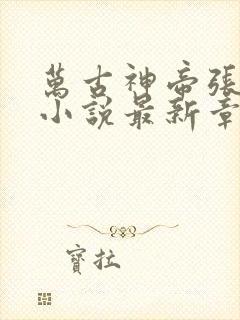 萬古神帝張
小說最新章
寶拉